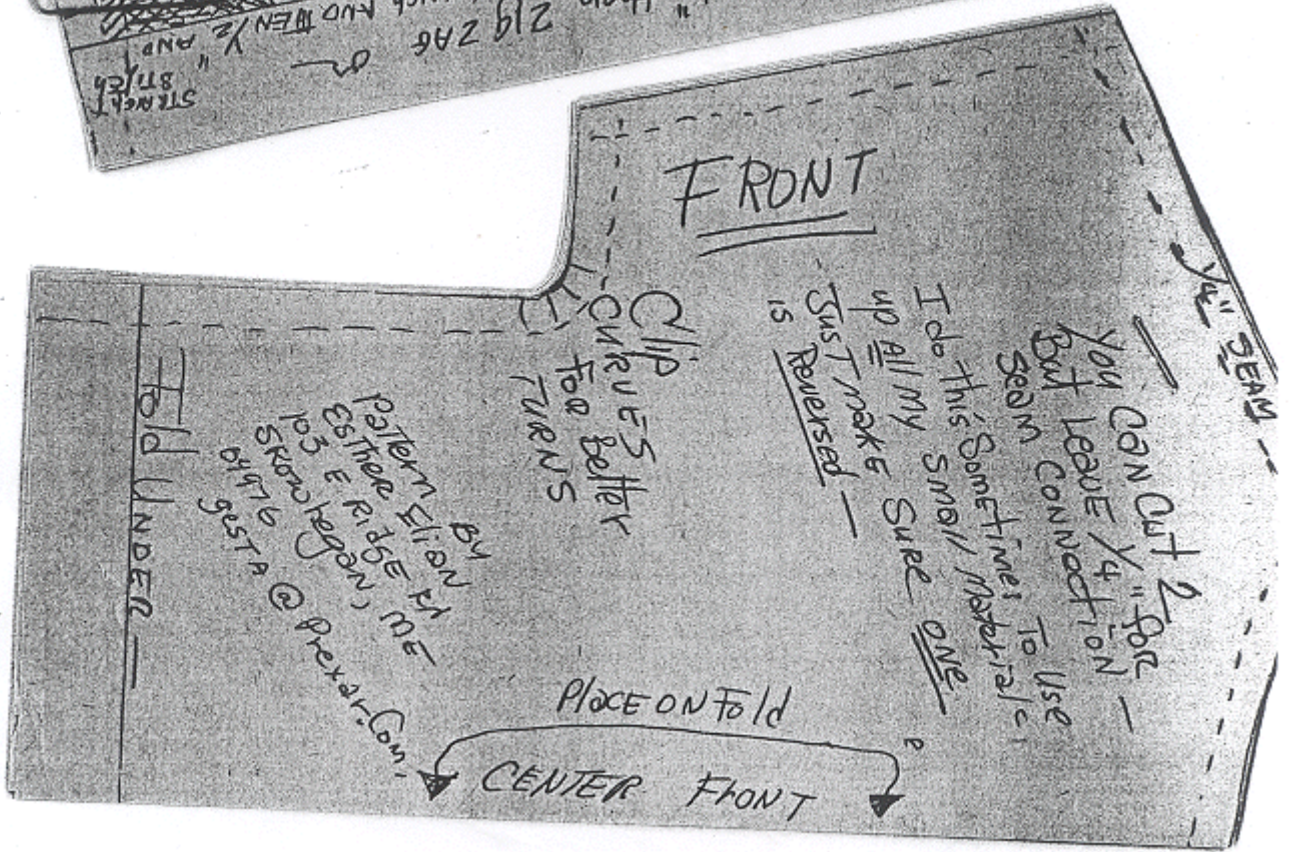 STRAIGHT
STITCH
" AND
AND THEN 1/2
or
ZIG ZAG
FRONT
1/4" SEAM
You CAN Cut 2
But Leave 1/4" for
Seam Connection —
I do this Sometimes To Use
up All My small Materials
Just make Sure one
is Reversed —
Clip
CURVES
For Better
TURNS
Pattern By
Esther Elion
103 E Ridge Rd
Skowhegan, ME
04976
gesTA @ Prexar.Com.
Fold UNDER —
Place ON Fold
CENTER FRONT